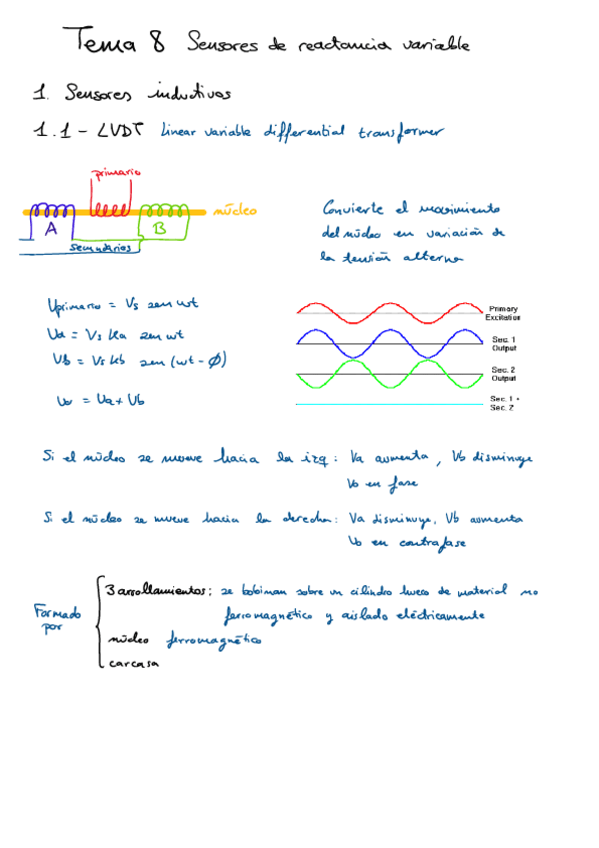 Tema 8 Sensores de reactancia variable
1. Sensores inductivos
1.1 - LVDT Linear variable differential transformer
primario
núcleo
A
B
Secundarios
Convierte el movimiento
del núcleo en variación de
la tensión alterna
Uprimario = Vs sen wt
Va = Vs Ka sen wt
Vb = Vs Kb sen (wt - ϕ)
Vo = Va + Vb
Primary
Excitation
Sec. 1
Output
Sec. 2
Output
Sec. 1 +
Sec. 2
Si el núcleo se mueve hacia la izq: Va aumenta, Vb disminuye
Vo en fase
Si el núcleo se mueve hacia la derecha: Va disminuye, Vb aumenta
Vo en contrafase
Formado
por
3 arrollamientos: se bobinan sobre un cilindro hueco de material no
ferromagnético y aislado eléctricamente
núcleo ferromagnético
carcasa